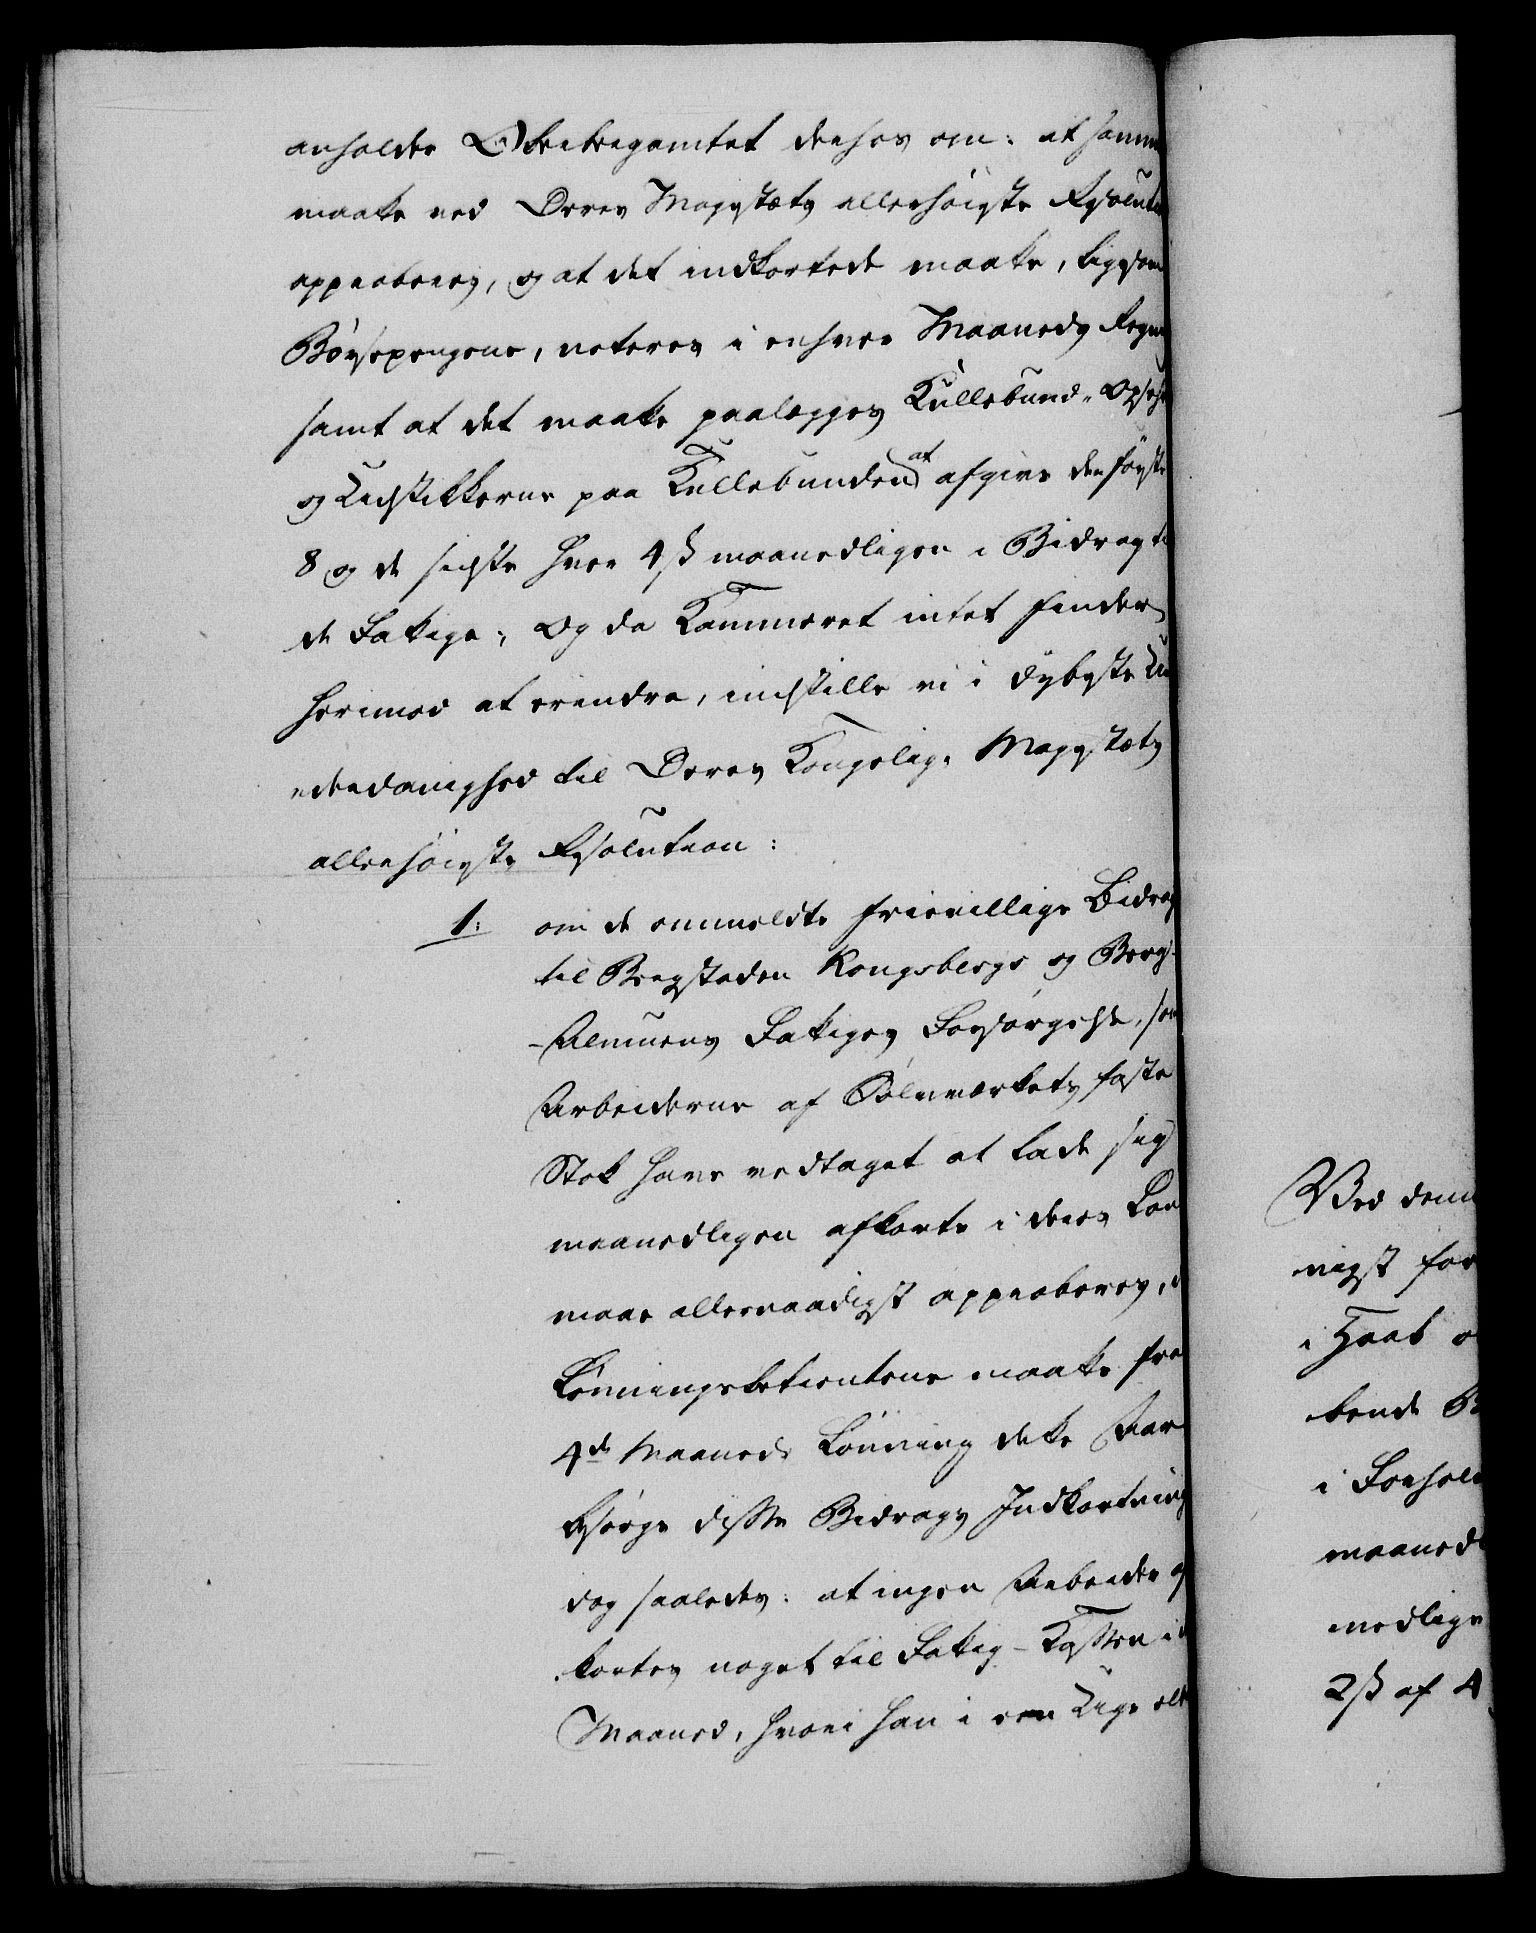 anholder Overbergamtet derhos om: at samme
maatte ved Deres Majestæts allerhøieste Resolut
approberes, og at det indkortede maatte, ligesom
Bøssepengene, noteres i enhver Maaneds Regn
samt at det maatte paalægges Kullebund-Opseh
og Udstikkerne paa Kullebunden at afgive den første
8 og de sidste hver 4 ß maanedligen i Bidrag ti
de Fattige; Og da Kammeret intet finder
herimod at erindre, indstille vi i dybeste Un
derdanighed til Deres Kongelige Majestæts
allerhøieste Resolution:
1: om de anmeldte frievillige Bidrag
til Bergstaden Kongsbergs og Berg-
-Almuens Fattiges Forsørgelse, som
Arbeiderne af Sølvværkets faste
Stok have vedtaget at lade sig
maanedligen afkorte i deres Løn
maae allernaadigst approberes, o
Lønningsbetientene maatte fra
4de Maaneds Lønning dette Aar
besørge disse Bidrags Indkortning
dog saaledes: at ingen Arbeider af
kortes noget til Fattig-Kassen i d
Maaned, hvori han i een Uge ell
Ved denn
nigst for
i Haab o
bende B
i Forhold
maanedl
medlige
2 ß af 4